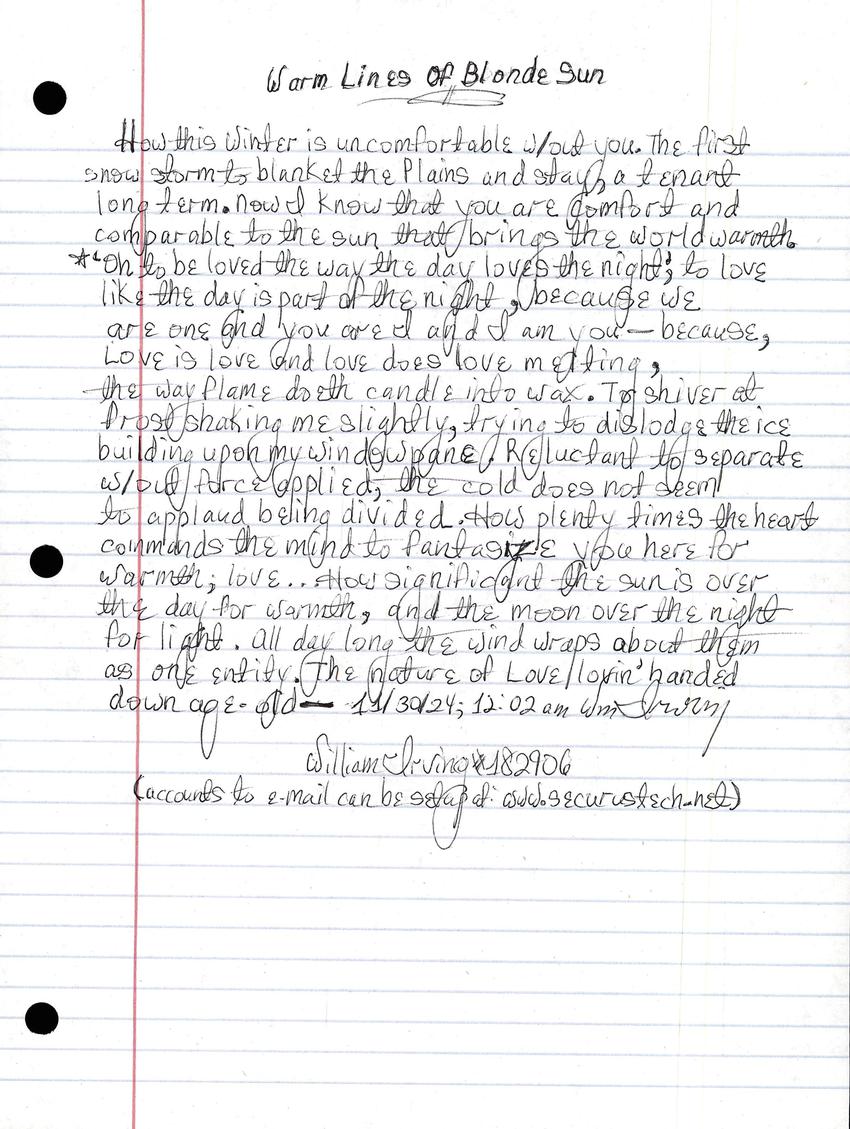 Warm Lines Of Blonde Sun
How this Winter is uncomfortable w/out you. The first
snow storm to blanket the Plains and stay, a tenant
long term. Now I know that you are comfort and
comparable to the sun that brings the world warmth.
*"Oh to be loved the way the day loves the night; to love
like the day is part of the night, because we
are one and you are I and I am you — because,
Love is love and love does love melting,
the way flame doeth candle into wax. To shiver at
frost shaking me slightly, trying to dislodge the ice
building upon my windowpane. Reluctant to separate
w/out force applied, the cold does not seem
to applaud being divided. How plenty times the heart
commands the mind to fantasize you here for
warmth; love.. How significant the sun is over
the day for warmth, and the moon over the night
for light. All day long the wind wraps about them
as one entity. The nature of Love/lovin' handed
down age-old — 11/30/24; 12:02 am Wm Irving
William Irving #182906
(accounts to e-mail can be setup at: www.securustech.net)